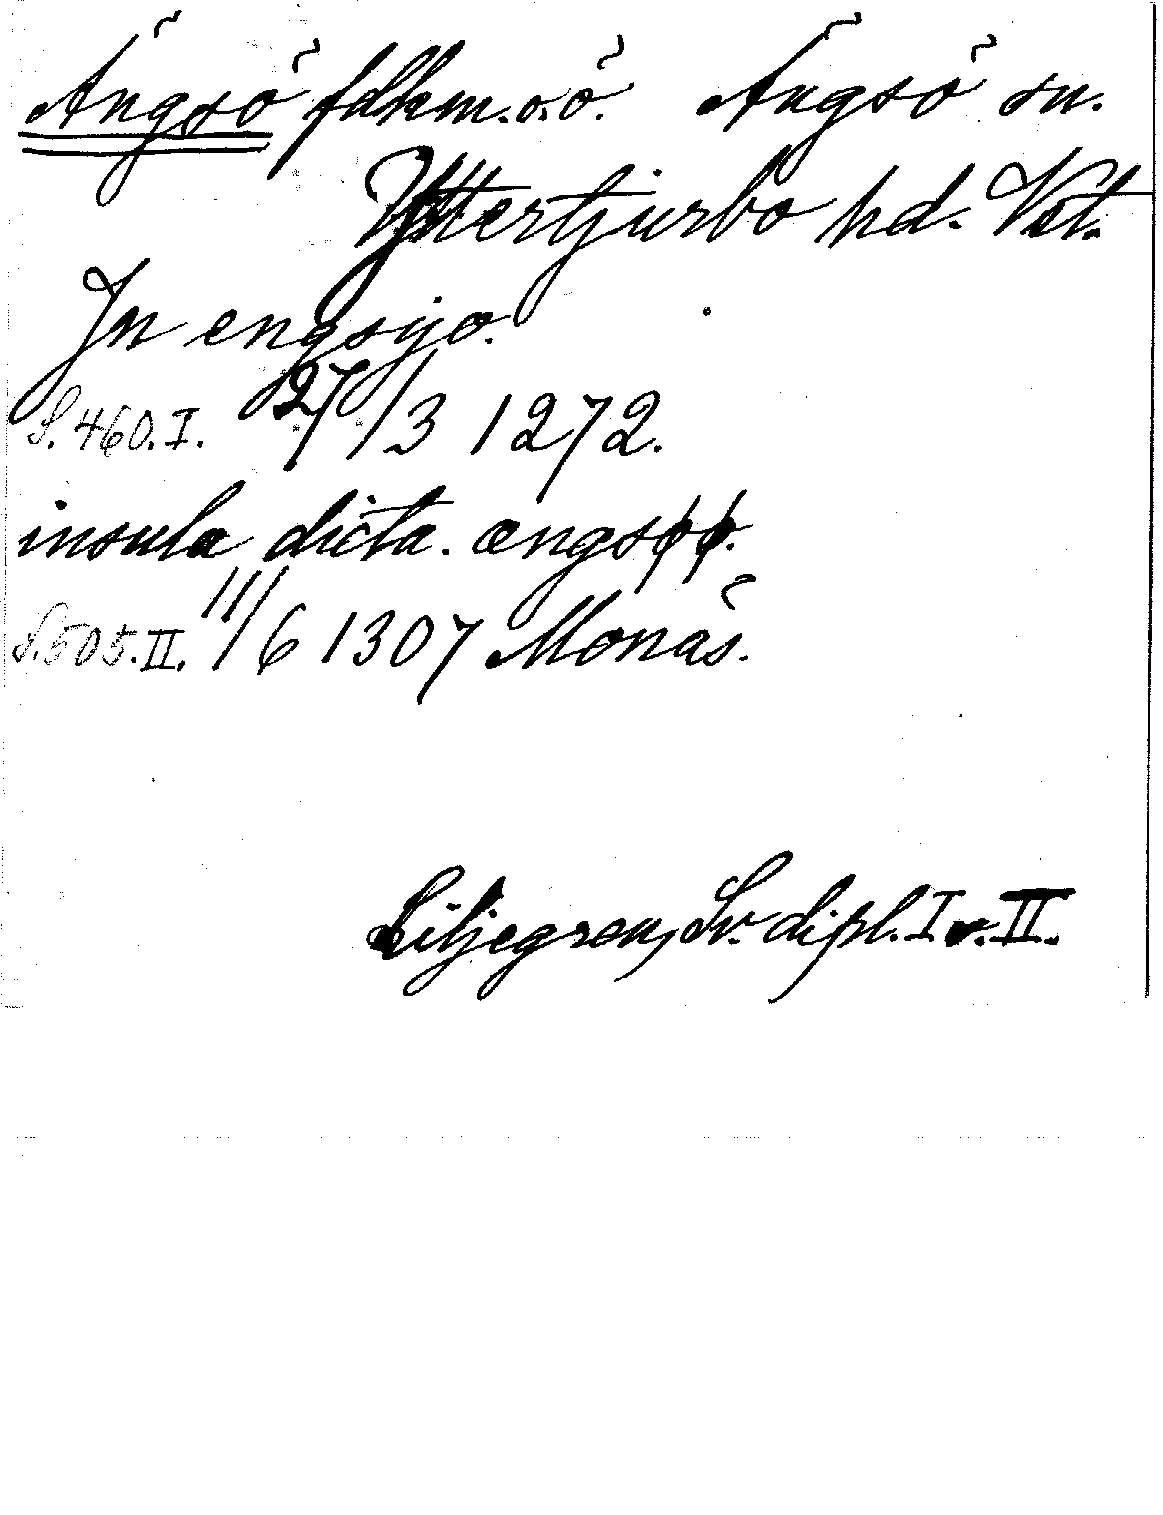 Ängsö fdkm. o. ö. Ängsö sn.
Yttertjurbo hd. Vstl.
Jn engsyo.
S. 460. I. 27/3 1272.
insula dicta. ængsøø.
S. 505. II. 11/6 1307 Monäs.
Liljegren, Sv. dipl. I o. II.